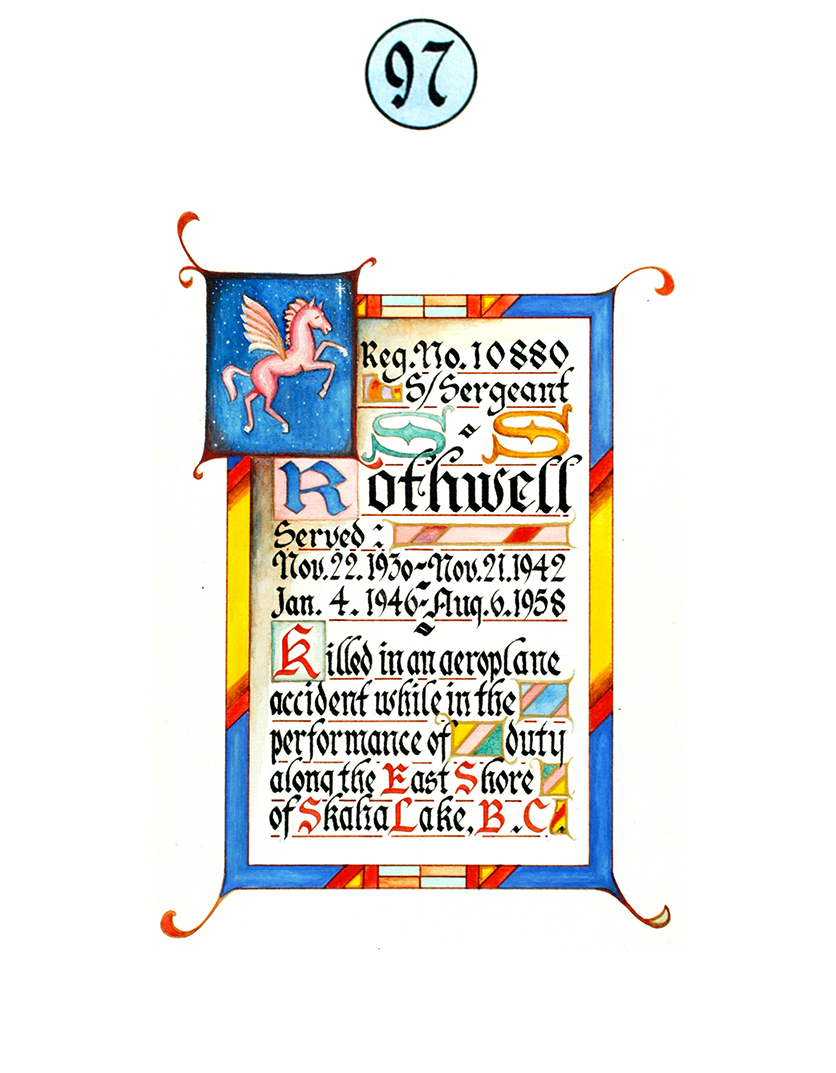 97
Reg. No. 10880
S/Sergeant
S - S
Rothwell
Served:
Nov. 22. 1930-Nov. 21. 1942
Jan. 4. 1946-Aug. 6. 1958
Killed in an aeroplane
accident while in the
performance of duty
along the East Shore
of Skaha Lake, B.C.